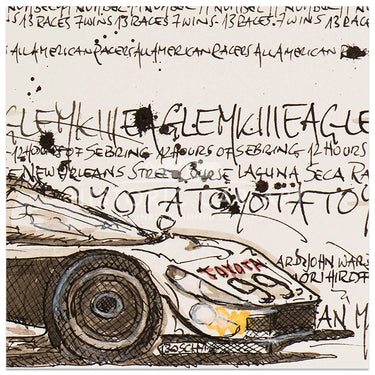 13 RACES 7 WINS 13 RACES 7 WINS 13 RACES 7 WINS 13 RACES
ALL AMERICAN RACERS ALL AMERICAN RACERS ALL AMERICAN RAC
EAGLEMKIII EAGLEMKIII EAGLE
12 HOURS OF SEBRING 12 HOURS OF SEBRING 12 HOURS
NEW ORLEANS STREET COURSE LAGUNA SECA RA
TOYOTA TOYOTA TOY
TOYOTA
99
JOHN WAR
AN M
BOSCH